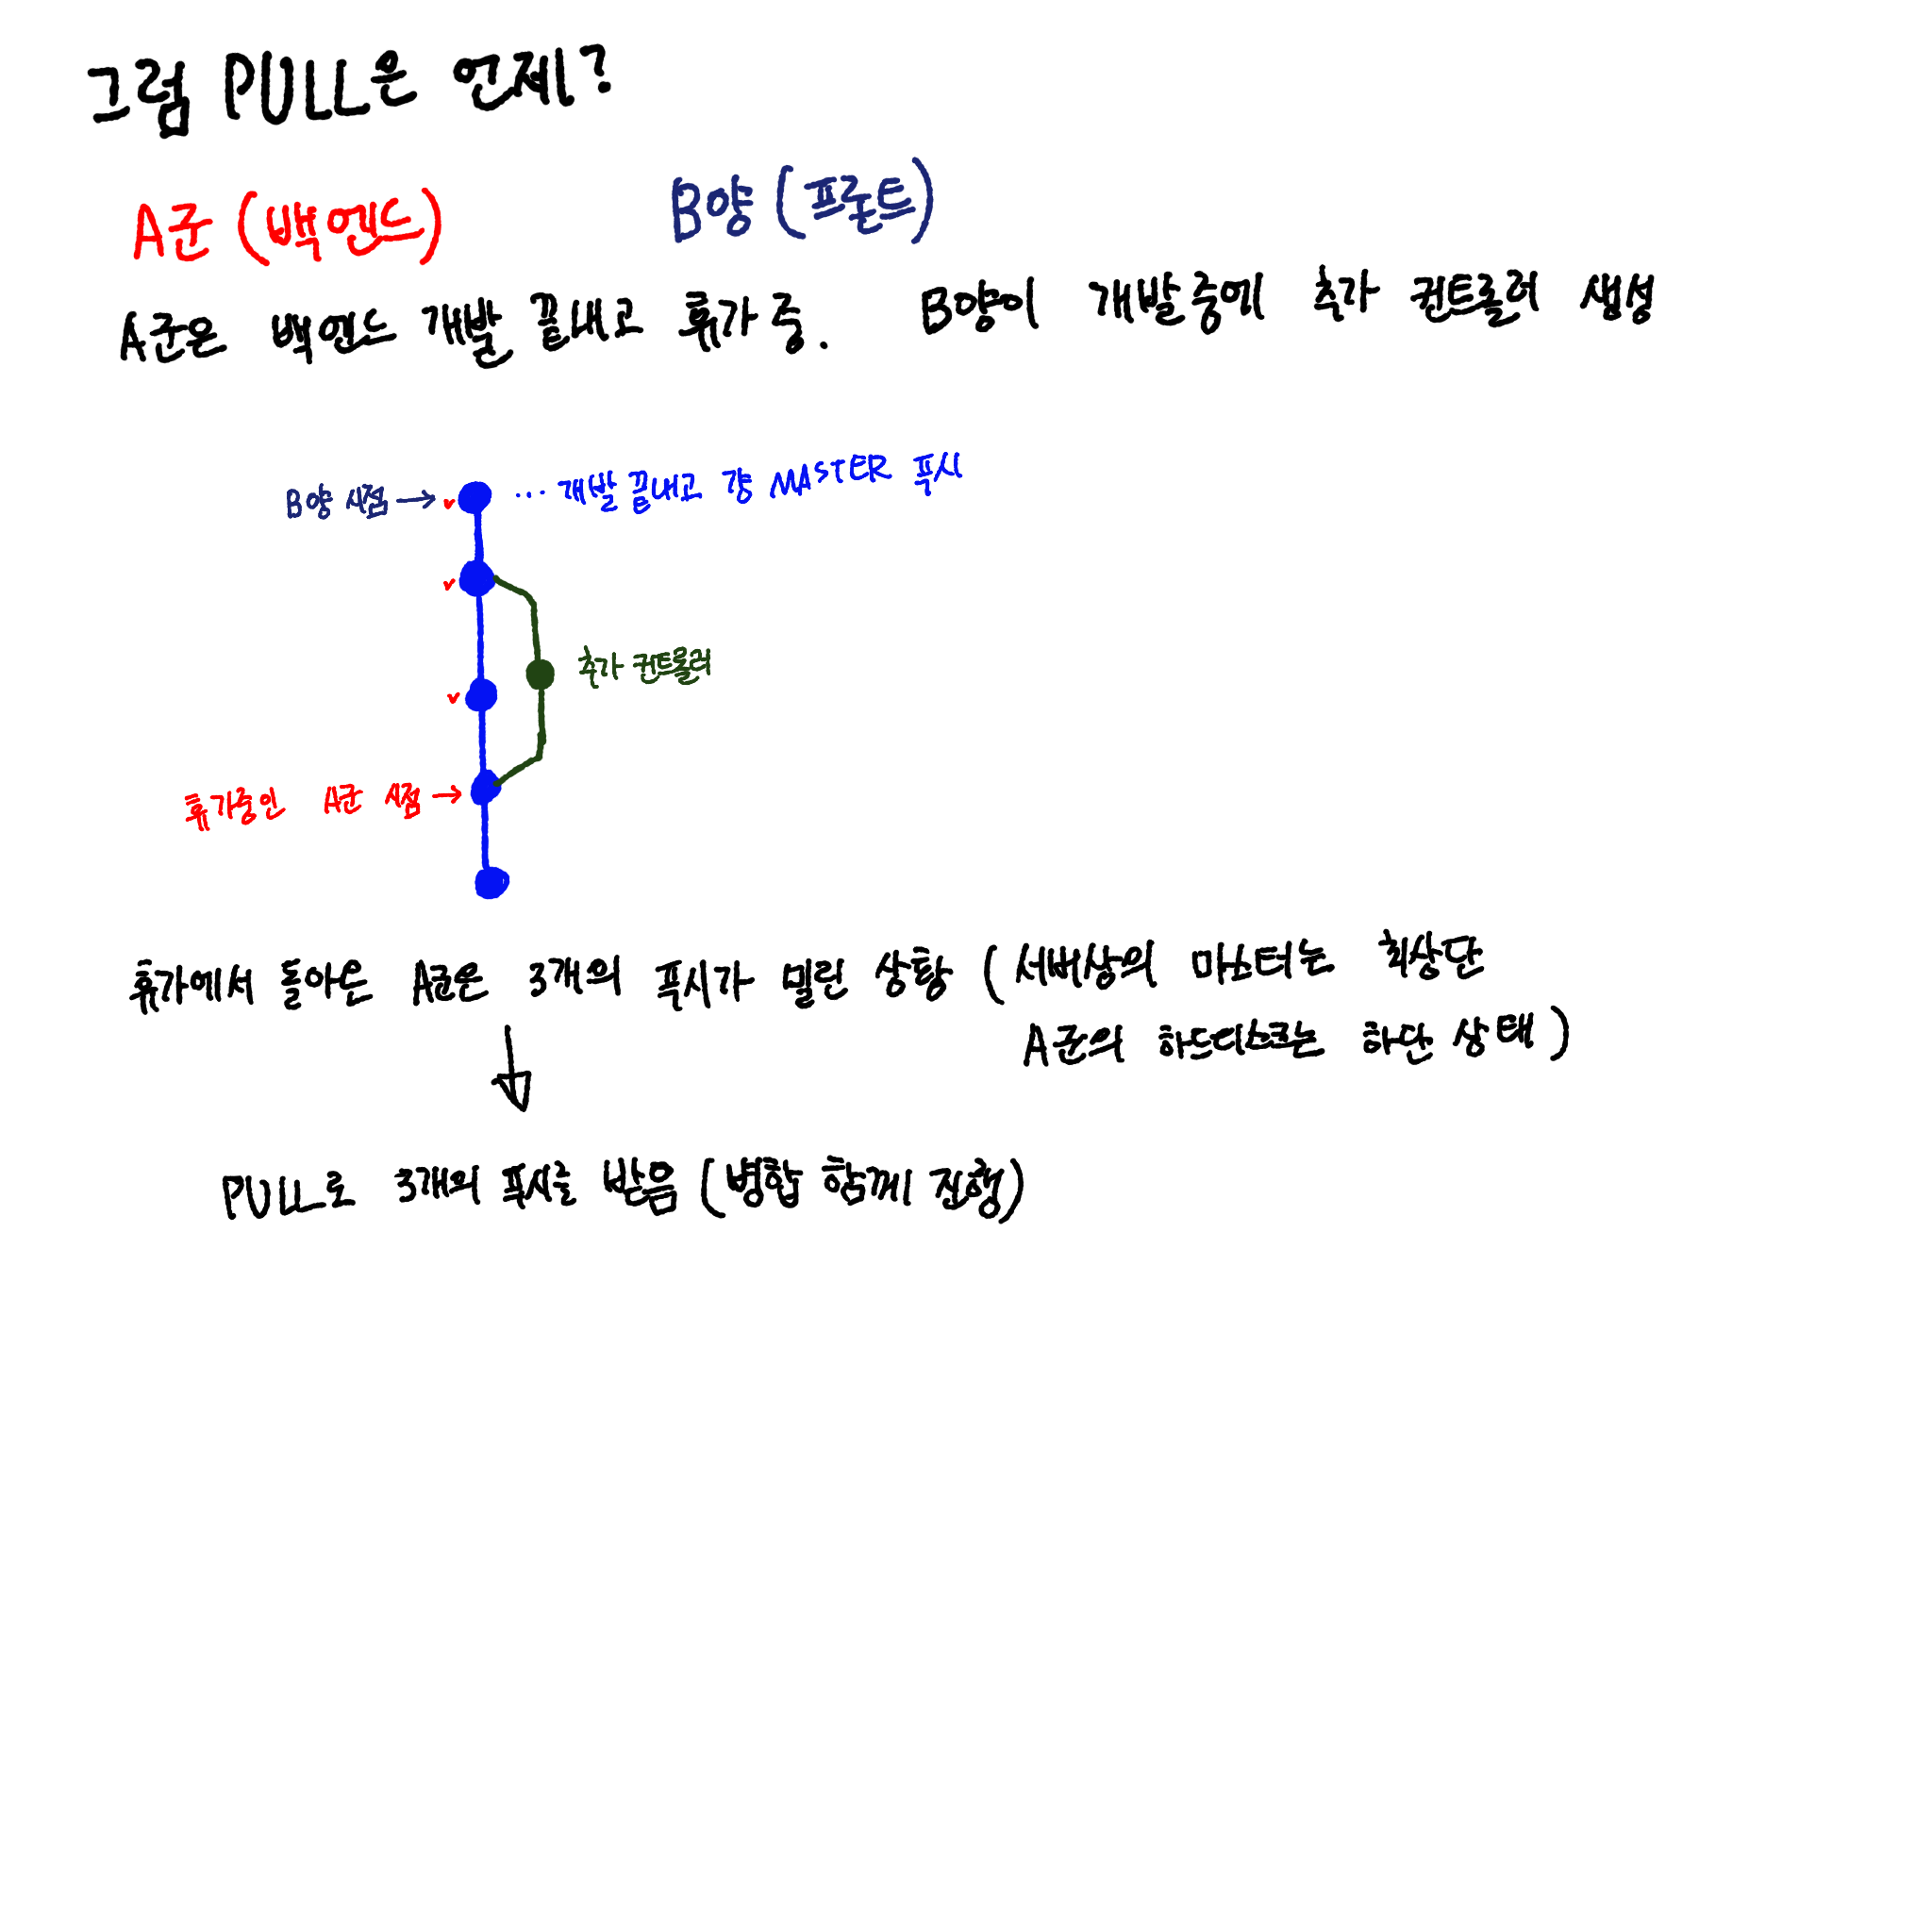 그럼 PULL은 언제?
A군 (백엔드)
B양 (프론트)
A군은 백엔드 개발 끝내고 휴가 중. B양이 개발 중에 추가 컨트롤러 생성
B양 시점 → ... 개발 끝내고 걍 MASTER 푸시
추가 컨트롤러
휴가중인 A군 시점 →
휴가에서 돌아온 A군은 3개의 푸시가 밀린 상황 (서버상의 마스터는 최상단
A군의 하드디스크는 하단 상태)
PULL로 3개의 푸시를 받음 (병합 함께 진행)